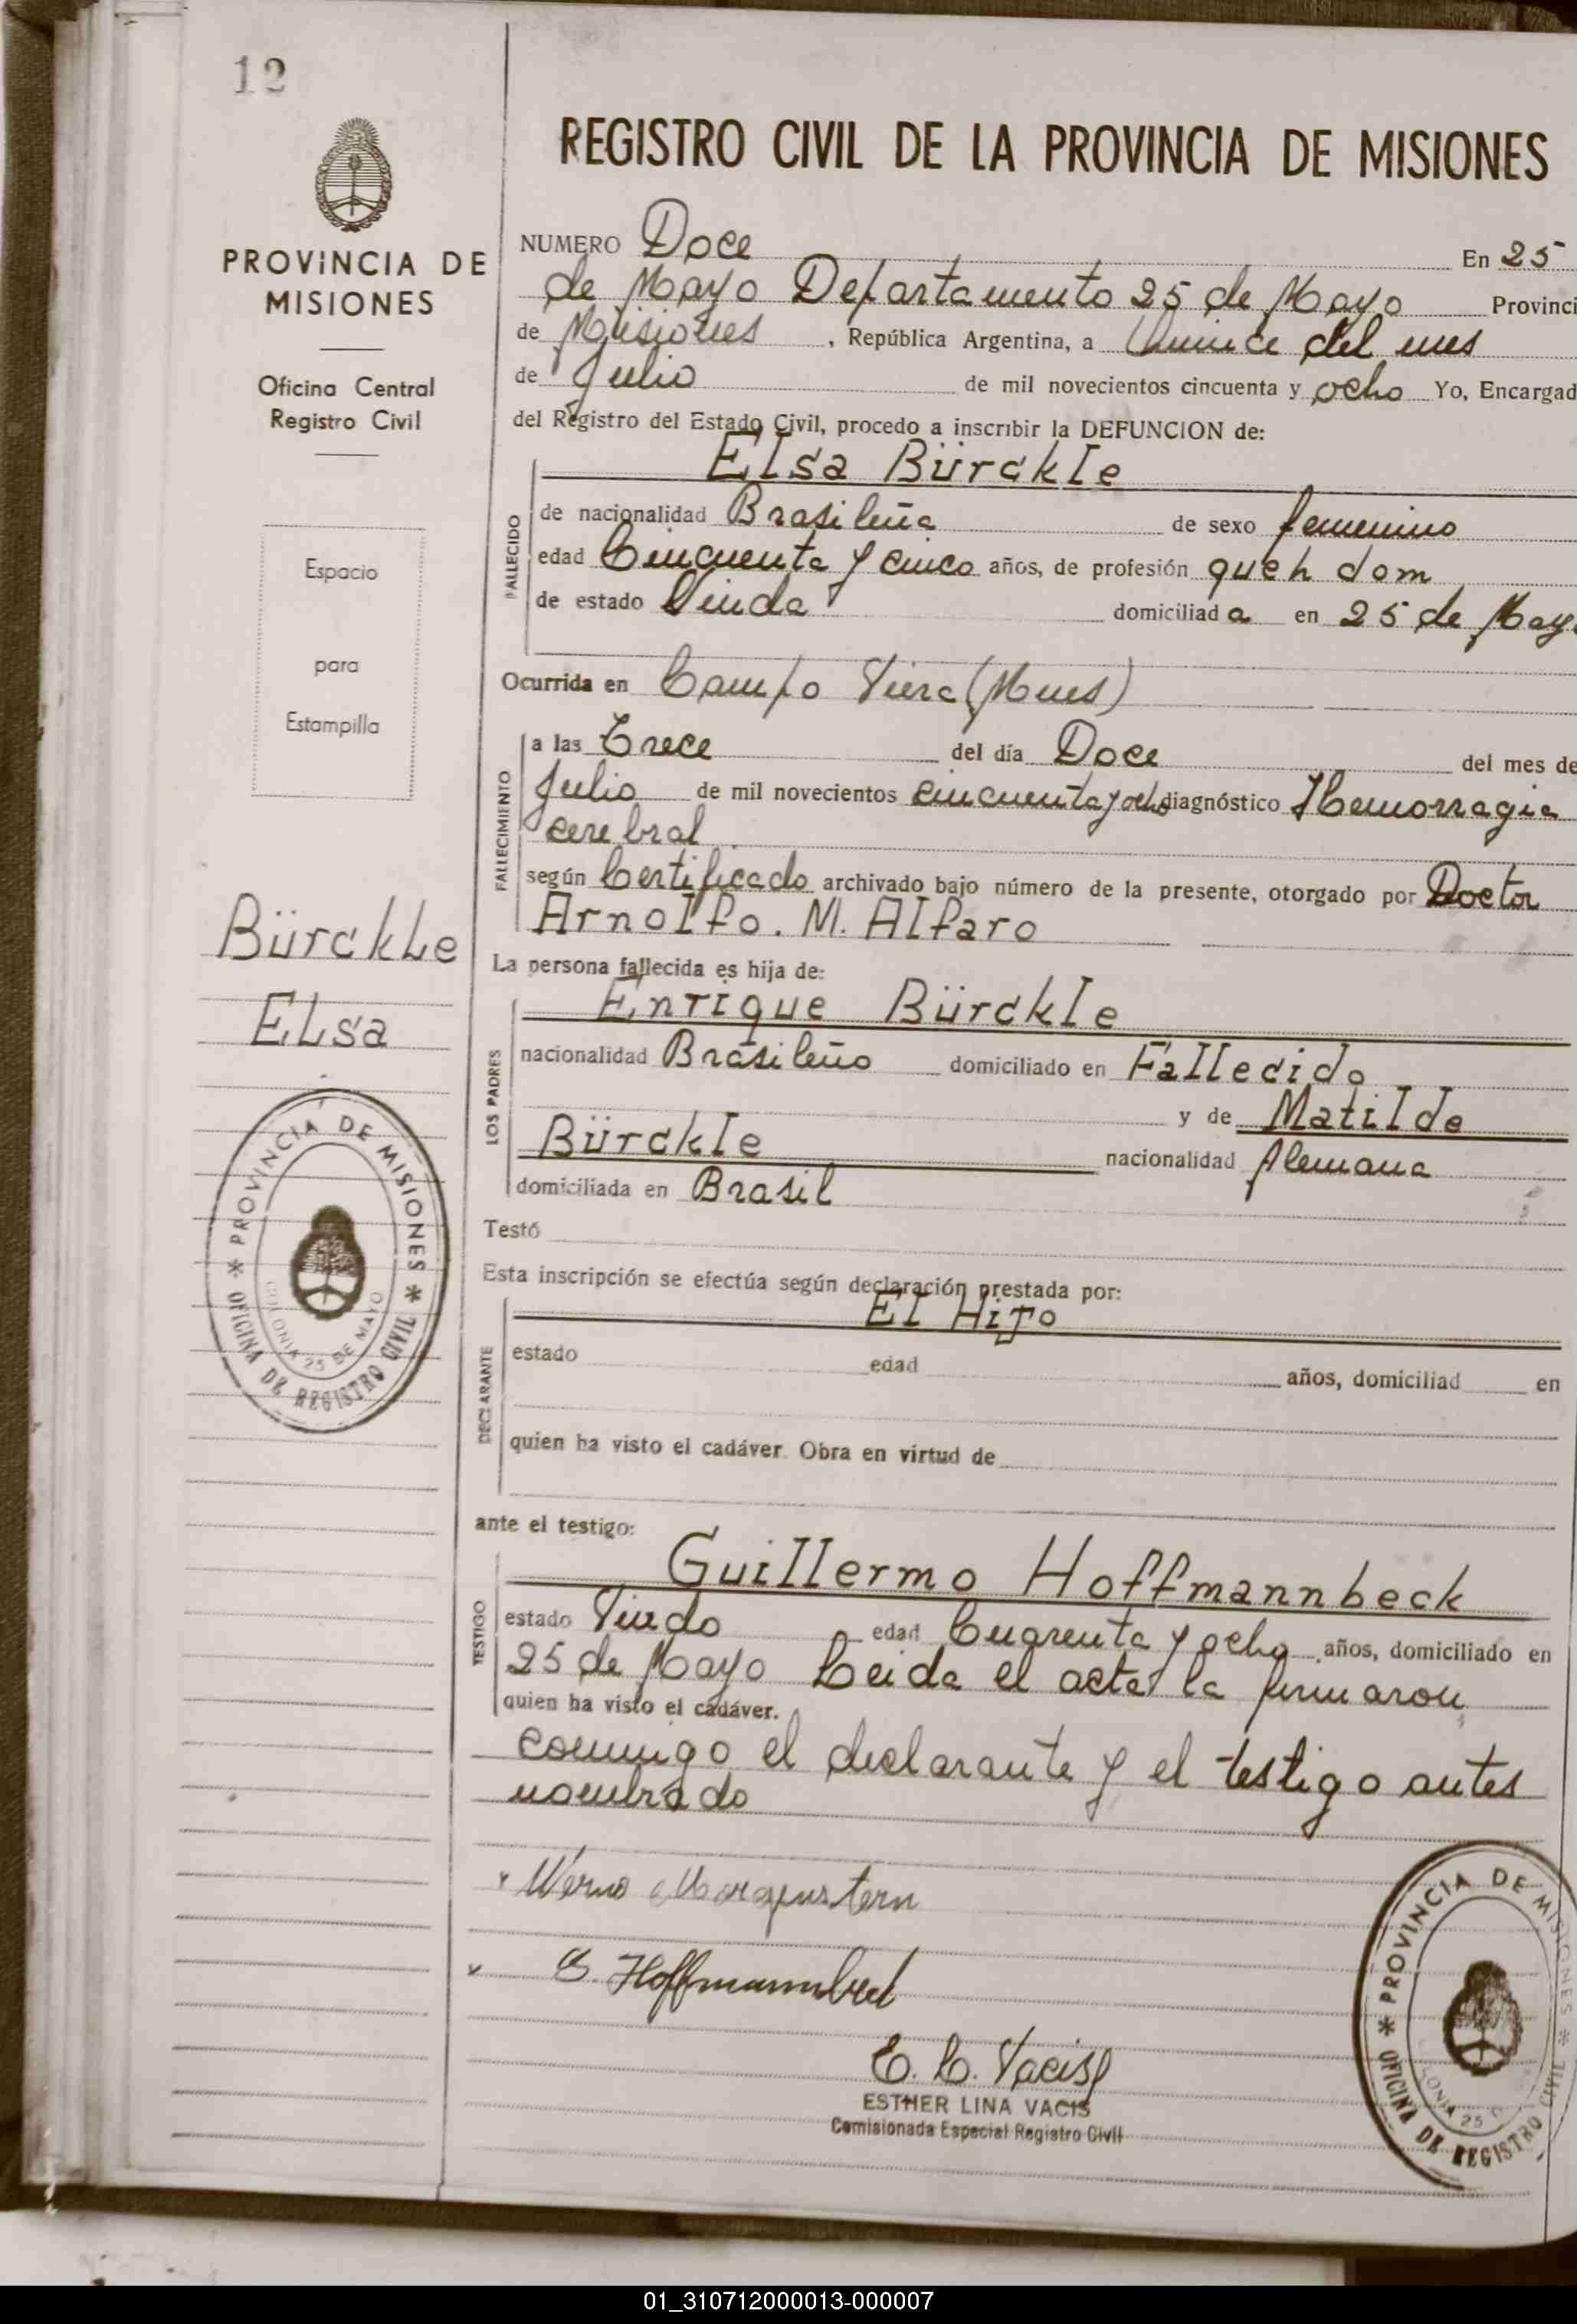 12
PROVINCIA DE
MISIONES
Oficina Central
Registro Civil
Espacio
para
Estampilla
Bürckle
Elsa
PROVINCIA DE MISIONES
OFICINA DE REGISTRO CIVIL
COLONIA 25 DE MAYO
REGISTRO CIVIL DE LA PROVINCIA DE MISIONES
NUMERO Doce En 25
de Mayo Departamento 25 de Mayo Provinci
de Misiones, República Argentina, a Quince del mes
de Julio de mil novecientos cincuenta y ocho Yo, Encargad
del Registro del Estado Civil, procedo a inscribir la DEFUNCION de:
Elsa Bürckle
FALLECIDO
de nacionalidad Brasileña de sexo femenino
edad Cincuenta y cinco años, de profesión queh dom
de estado Viuda domiciliad a en 25 de Mayo
Ocurrida en Campo Viera (Mnes)
FALLECIMIENTO
a las Trece del día Doce del mes de
Julio de mil novecientos cincuenta y ocho diagnóstico Hemorragia
cerebral
según Certificado archivado bajo número de la presente, otorgado por Doctor
Arnolfo. M. Alfaro
La persona fallecida es hija de:
LOS PADRES
Enrique Bürckle
nacionalidad Brasileño domiciliado en Fallecido
y de Matilde
Bürckle nacionalidad Alemana
domiciliada en Brasil
Testó
Esta inscripción se efectúa según declaración prestada por:
El Hijo
DECLARANTE
estado edad años, domiciliad en
quien ha visto el cadáver. Obra en virtud de
ante el testigo:
Guillermo Hoffmannbeck
TESTIGO
estado Viudo edad Cuarenta y ocho años, domiciliado en
25 de Mayo Leida el acta la firmaron
quien ha visto el cadáver.
conmigo el declarante y el testigo antes
nombrado
Werno Morgenstern
G. Hoffmannbeck
E. L. Vacis
ESTHER LINA VACIS
Comisionada Especial Registro Civil
PROVINCIA DE MISIONES
OFICINA DE REGISTRO CIVIL
LONIA 25 D
01_310712000013-000007